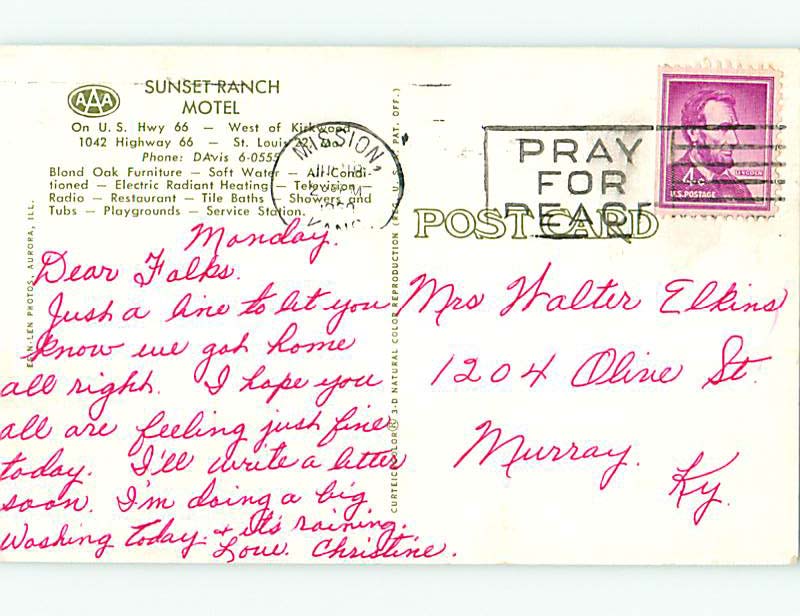 AAA
SUNSET RANCH
MOTEL
On U.S. Hwy 66 — West of Kirkwood
1042 Highway 66 — St. Louis 22, Mo.
Phone: DAvis 6-0555
Blond Oak Furniture — Soft Water — All-Condi-
tioned — Electric Radiant Heating — Television —
Radio — Restaurant — Tile Baths — Showers and
Tubs — Playgrounds — Service Station.
Monday.
Dear Folks.
Just a line to let you
know we got home
all right. I hope you
all are feeling just fine
today. I'll write a letter
soon. I'm doing a big
Washing today. & it's raining.
Love. Christine.
PHOTOS, AURORA, ILL.
CURTEICHCOLOR® 3-D NATURAL COLOR REPRODUCTION PAT. OFF.)
MISSION,
PRAY
FOR
PEACE
4c
LINCOLN
U.S. POSTAGE
POST CARD
Mrs Walter Elkins
1204 Olive St.
Murray.
Ky.